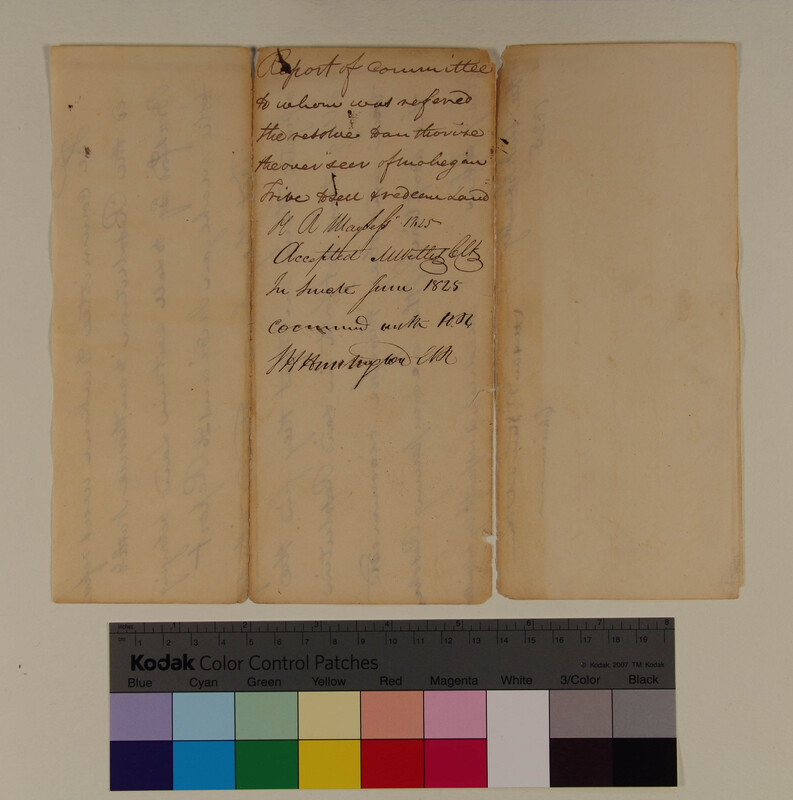 Report of Committee
to whom was referred
the resolve to authorise
the overseer of Mohegan
Tribe to sell & redeem Land
H R May Sess 1825
Accepted Clk
In Senate June 1825
concurred with H.R.
Huntington Clk
inches 1 2 3 4 5 6 7 8
cm 1 2 3 4 5 6 7 8 9 10 11 12 13 14 15 16 17 18 19
Kodak Color Control Patches
© Kodak, 2007 TM: Kodak
Blue Cyan Green Yellow Red Magenta White 3/Color Black